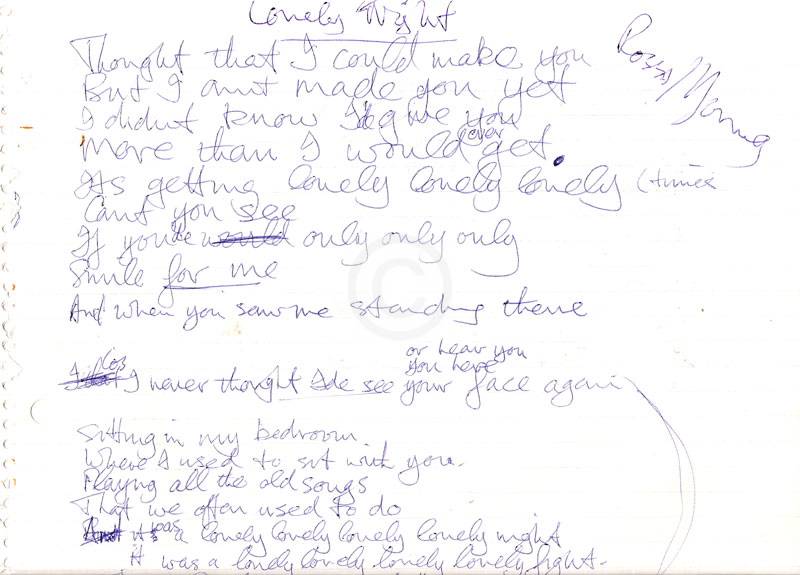 Lonely Night
Thought that I could make you
But I aint made you yet
I didnt know Ide give you
More than I would ever get.
Its getting lonely lonely lonely (times
Cant you see
If youde would only only only
Smile for me
And when you saw me standing there
or hear you
you here
I never thought Ide see your face again
Sitting in my bedroom.
Where I used to sit with you.
Playing all the old songs
That we often used to do
And it was a lonely lonely lonely lonely night
it was a lonely lonely lonely lonely fight.
©